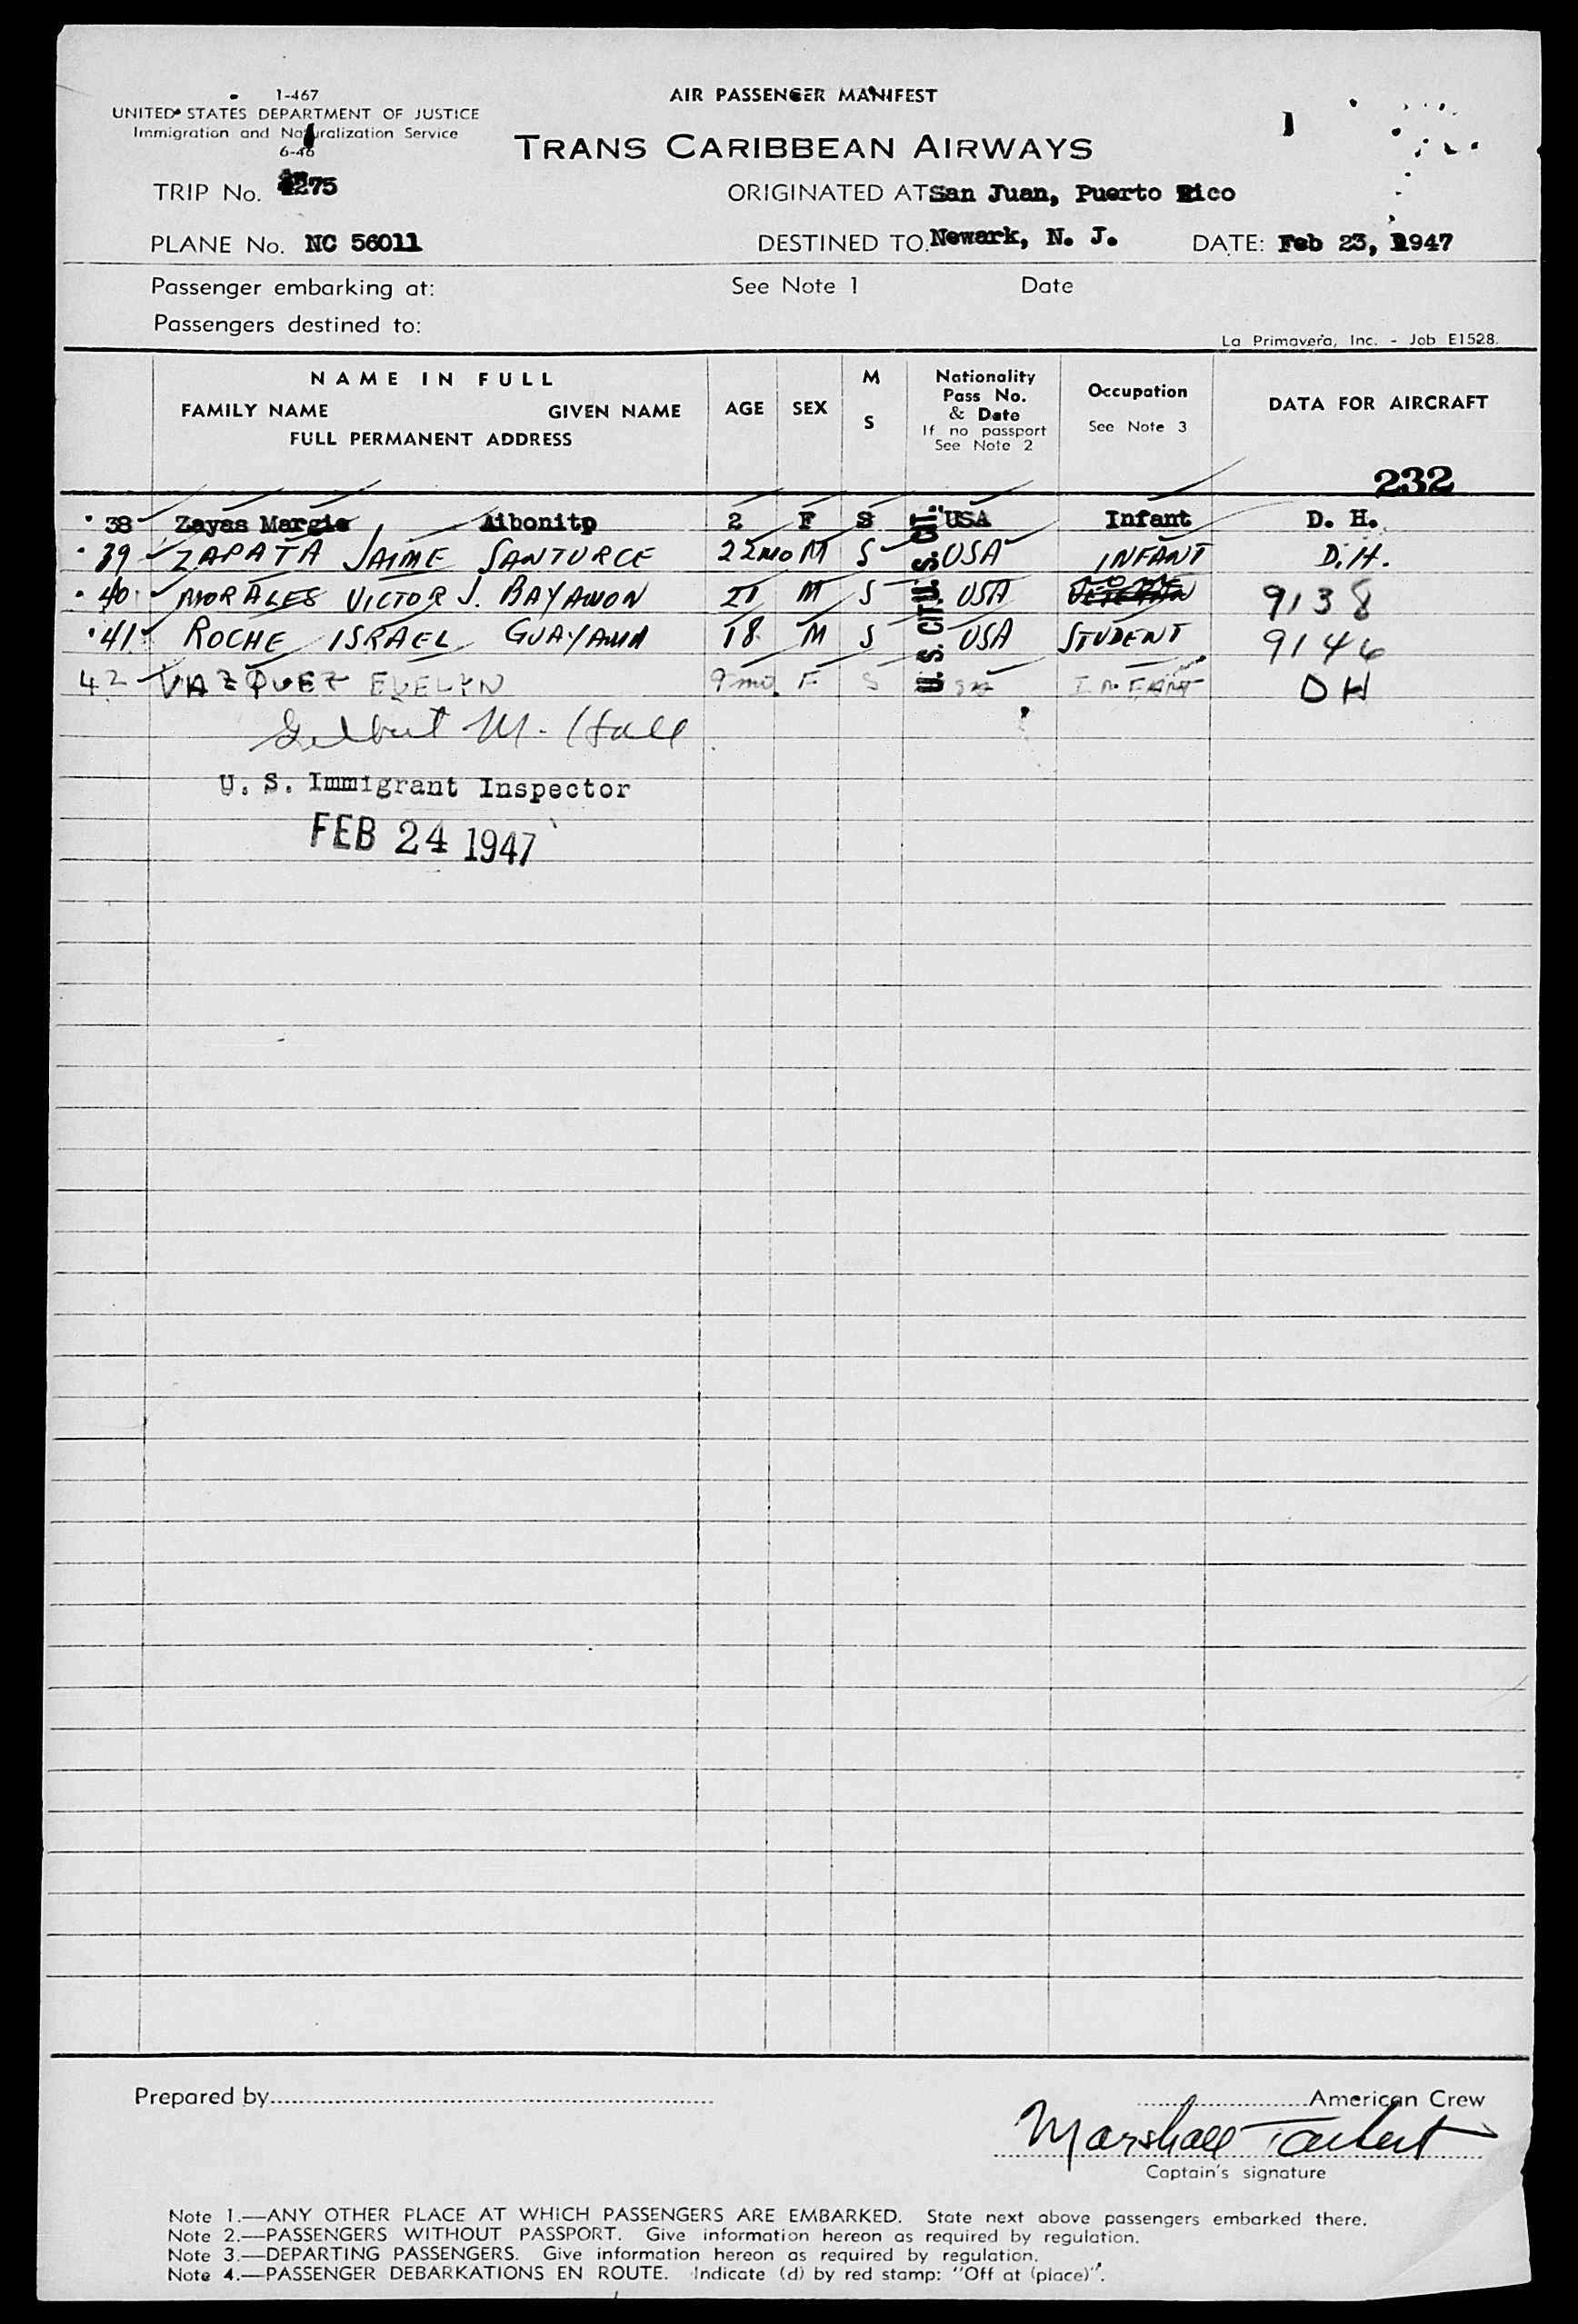 1-467
AIR PASSENGER MANIFEST
UNITED STATES DEPARTMENT OF JUSTICE
Immigration and Naturalization Service
6-46
TRANS CARIBBEAN AIRWAYS
TRIP No. 275
ORIGINATED AT San Juan, Puerto Rico
PLANE No. NC 56011
DESTINED TO. Newark, N. J.
DATE: Feb 23, 1947
Passenger embarking at:
See Note 1
Date
Passengers destined to:
La Primavera, Inc. - Job E1528.
NAME IN FULL
FAMILY NAME GIVEN NAME
FULL PERMANENT ADDRESS
AGE
SEX
M
S
Nationality
Pass No.
& Date
If no passport
See Note 2
Occupation
See Note 3
DATA FOR AIRCRAFT
232
38 Zayas Margie Aibonito 2 F S USA Infant D. H.
39 ZAPATA JAIME SANTURCE 22mo M S USA INFANT D.H.
40 MORALES VICTOR J. BAYAMON 21 M S USA 9138
41 ROCHE ISRAEL GUAYAMA 18 M S USA STUDENT 9146
42 VAZQUEZ EVELYN 9mo. F S USA INFANT DH
U. S. CIT.
U. S. CIT.
Gilbert M. Hall
U. S. Immigrant Inspector
FEB 24 1947
Prepared by
American Crew
Marshall
Captain's signature
Note 1.—ANY OTHER PLACE AT WHICH PASSENGERS ARE EMBARKED. State next above passengers embarked there.
Note 2.—PASSENGERS WITHOUT PASSPORT. Give information hereon as required by regulation.
Note 3.—DEPARTING PASSENGERS. Give information hereon as required by regulation.
Note 4.—PASSENGER DEBARKATIONS EN ROUTE. Indicate (d) by red stamp: "Off at (place)".